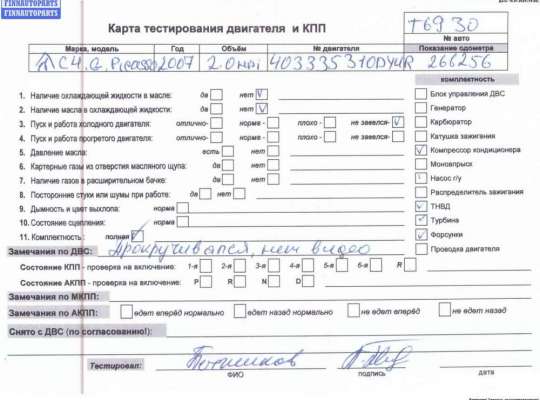 FINNAUTOPARTS
FINNAUTOPARTS
Карта тестирования двигателя и КПП
Т6930
№ авто
Марка, модель Год Объём № двигателя Показание одометра
C4 G. Picasso 2007 2.0 HDi 266256
комплектность
1. Наличие охлаждающей жидкости в масле: да нет Блок управления ДВС
2. Наличие масла в охлаждающей жидкости: да нет Генератор
3. Пуск и работа холодного двигателя: отлично- норма - плохо - не завелся- Карбюратор
4. Пуск и работа прогретого двигателя: отлично- норма - плохо - не завелся- Катушка зажигания
5. Давление масла: есть нет Компрессор кондиционера
6. Картерные газы из отверстия масляного щупа: да нет Моновпрыск
7. Наличие газов в расширительном бачке: да нет Насос г/у
8. Посторонние стуки или шумы при работе: да нет Распределитель зажигания
9. Дымность и цвет выхлопа: норма ТНВД
10. Состояние сцепления: норма Турбина
11. Комплектность: полная Форсунки
Замечания по ДВС: Прокручивался, нет видео Проводка двигателя
Состояние КПП - проверка на включение: 1-я 2-я 3-я 4-я 5-я 6-я R
Состояние АКПП - проверка на включение: P R N D
Замечания по МКПП:
Замечания по АКПП: едет вперёд нормально едет назад нормально не едет вперёд не едет назад
Снято с ДВС (по согласованию!):
Тестировал:
ФИО подпись дата